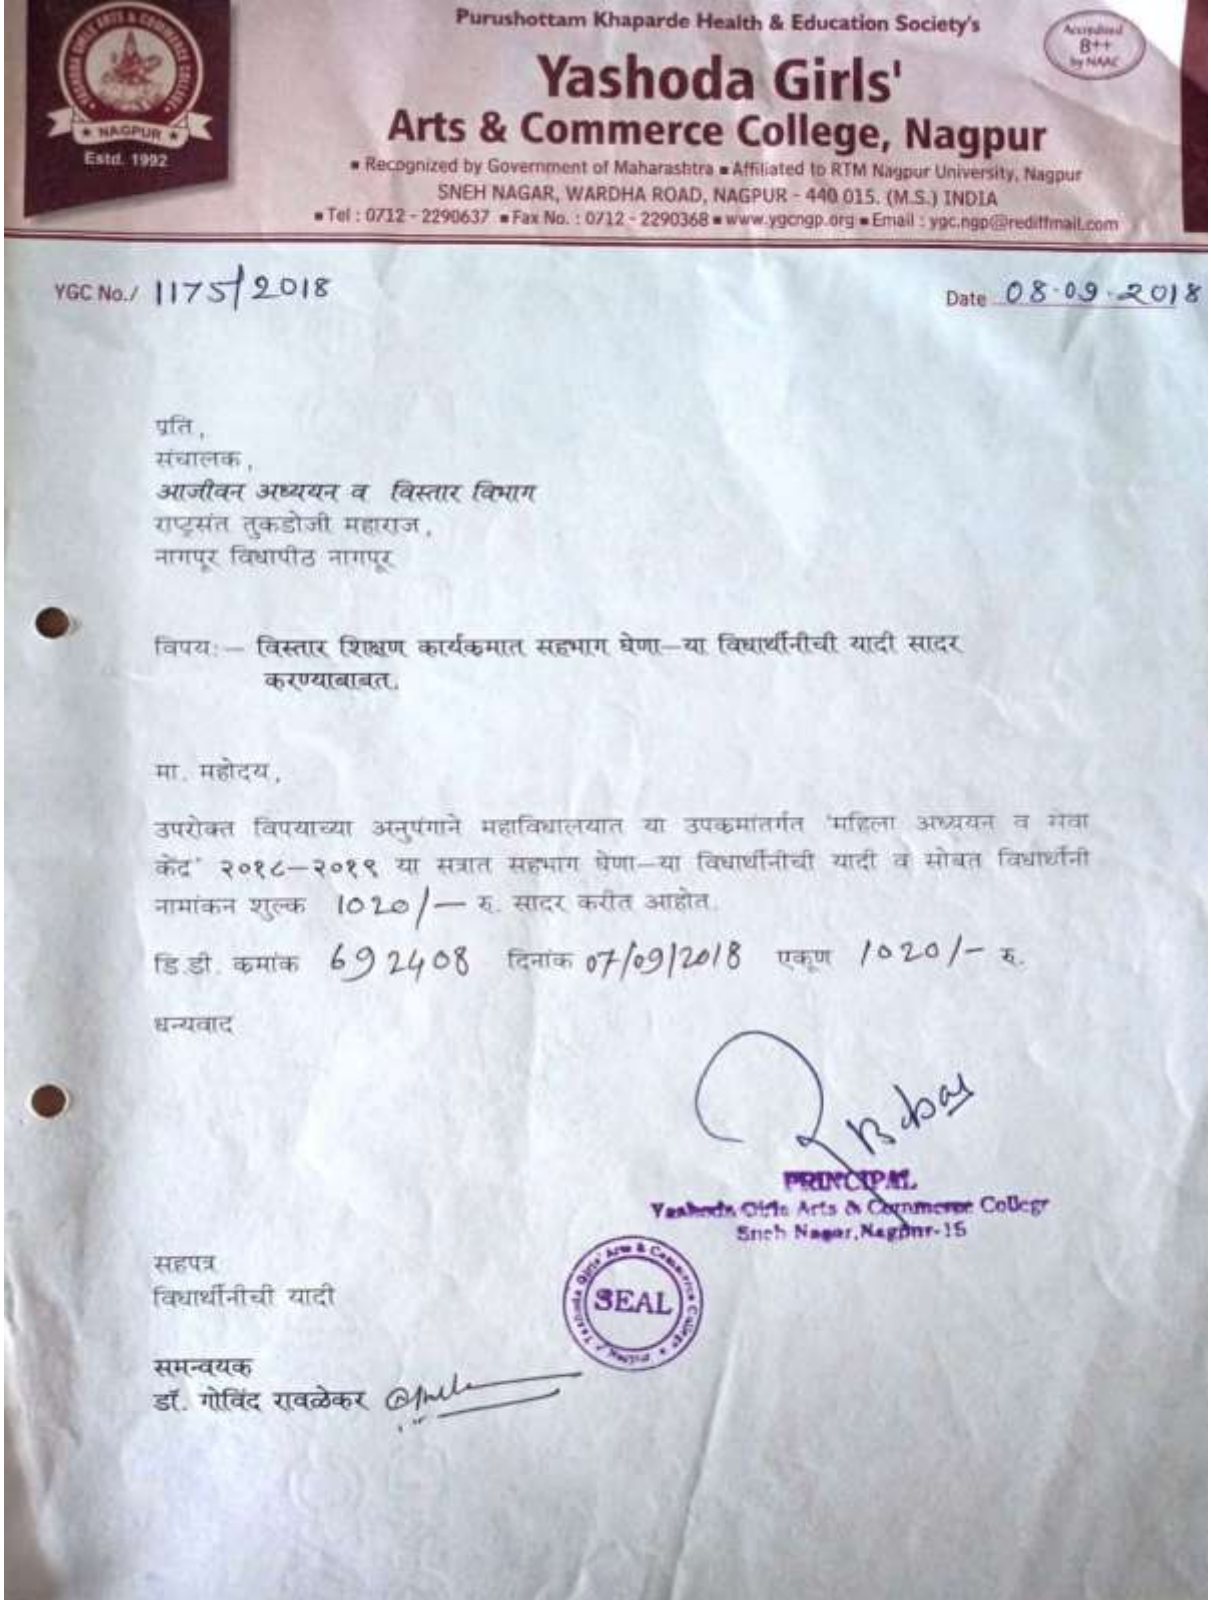 Purushottam Khaparde Health & Education Society's
Accredited
B++
by NAAC
Yashoda Girls'
Arts & Commerce College, Nagpur
YASHODA GIRLS' ARTS & COMMERCE COLLEGE
NAGPUR
Estd. 1992
▪ Recognized by Government of Maharashtra ▪ Affiliated to RTM Nagpur University, Nagpur
SNEH NAGAR, WARDHA ROAD, NAGPUR - 440 015. (M.S.) INDIA
▪ Tel : 0712 - 2290637 ▪ Fax No. : 0712 - 2290368 ▪ www.ygcngp.org ▪ Email : ygc.ngp@rediffmail.com
YGC No./ 1175/2018
Date 08.09.2018
प्रति,
संचालक,
आजीवन अध्ययन व विस्तार विभाग
राष्ट्रसंत तुकडोजी महाराज,
नागपूर विधापीठ नागपूर
विषय:— विस्तार शिक्षण कार्यकमात सहभाग घेणा—या विधार्थीनीची यादी सादर
करण्याबाबत.
मा. महोदय,
उपरोक्त विषयाच्या अनुषंगाने महाविधालयात या उपकमांतर्गत 'महिला अध्ययन व सेवा
केंद' २०१८—२०१९ या सत्रात सहभाग घेणा—या विधार्थीनीची यादी व सोबत विधार्थीनी
नामांकन शुल्क 1020/— रु. सादर करीत आहोत.
डि.डी. कमांक 692408 दिनांक 07/09/2018 एकूण 1020/- रु.
धन्यवाद
PRINCIPAL
Yashoda Girls Arts & Commerce College
Sneh Nagar, Nagpur-15
सहपत्र
विधार्थीनीची यादी
SEAL
समन्वयक
डॉ. गोविंद रावळेकर